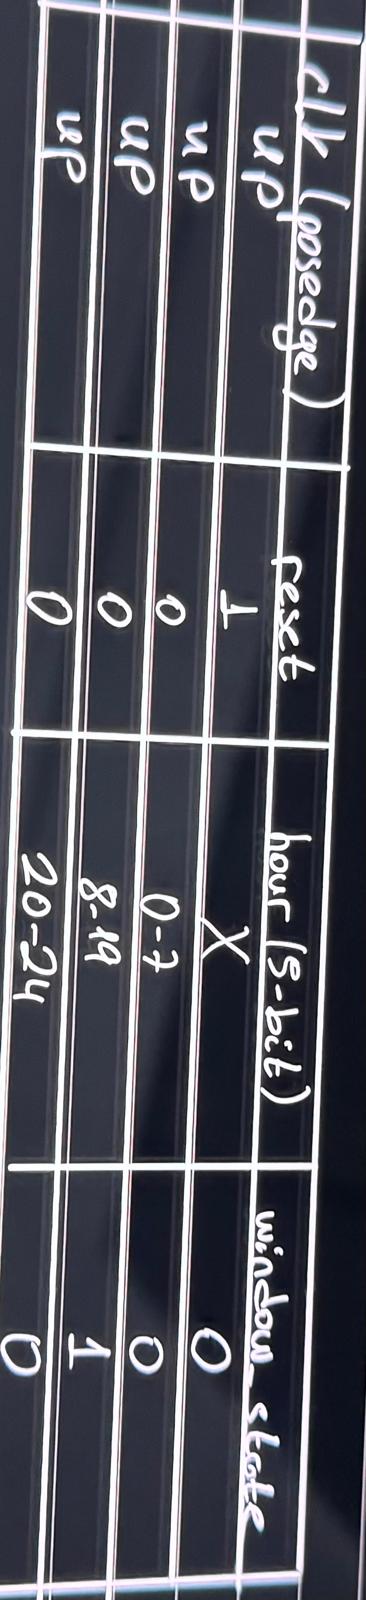 clk (posedge) reset hour (5-bit) window_state
up 1 X 0
up 0 0-7 0
up 0 8-19 1
up 0 20-24 0